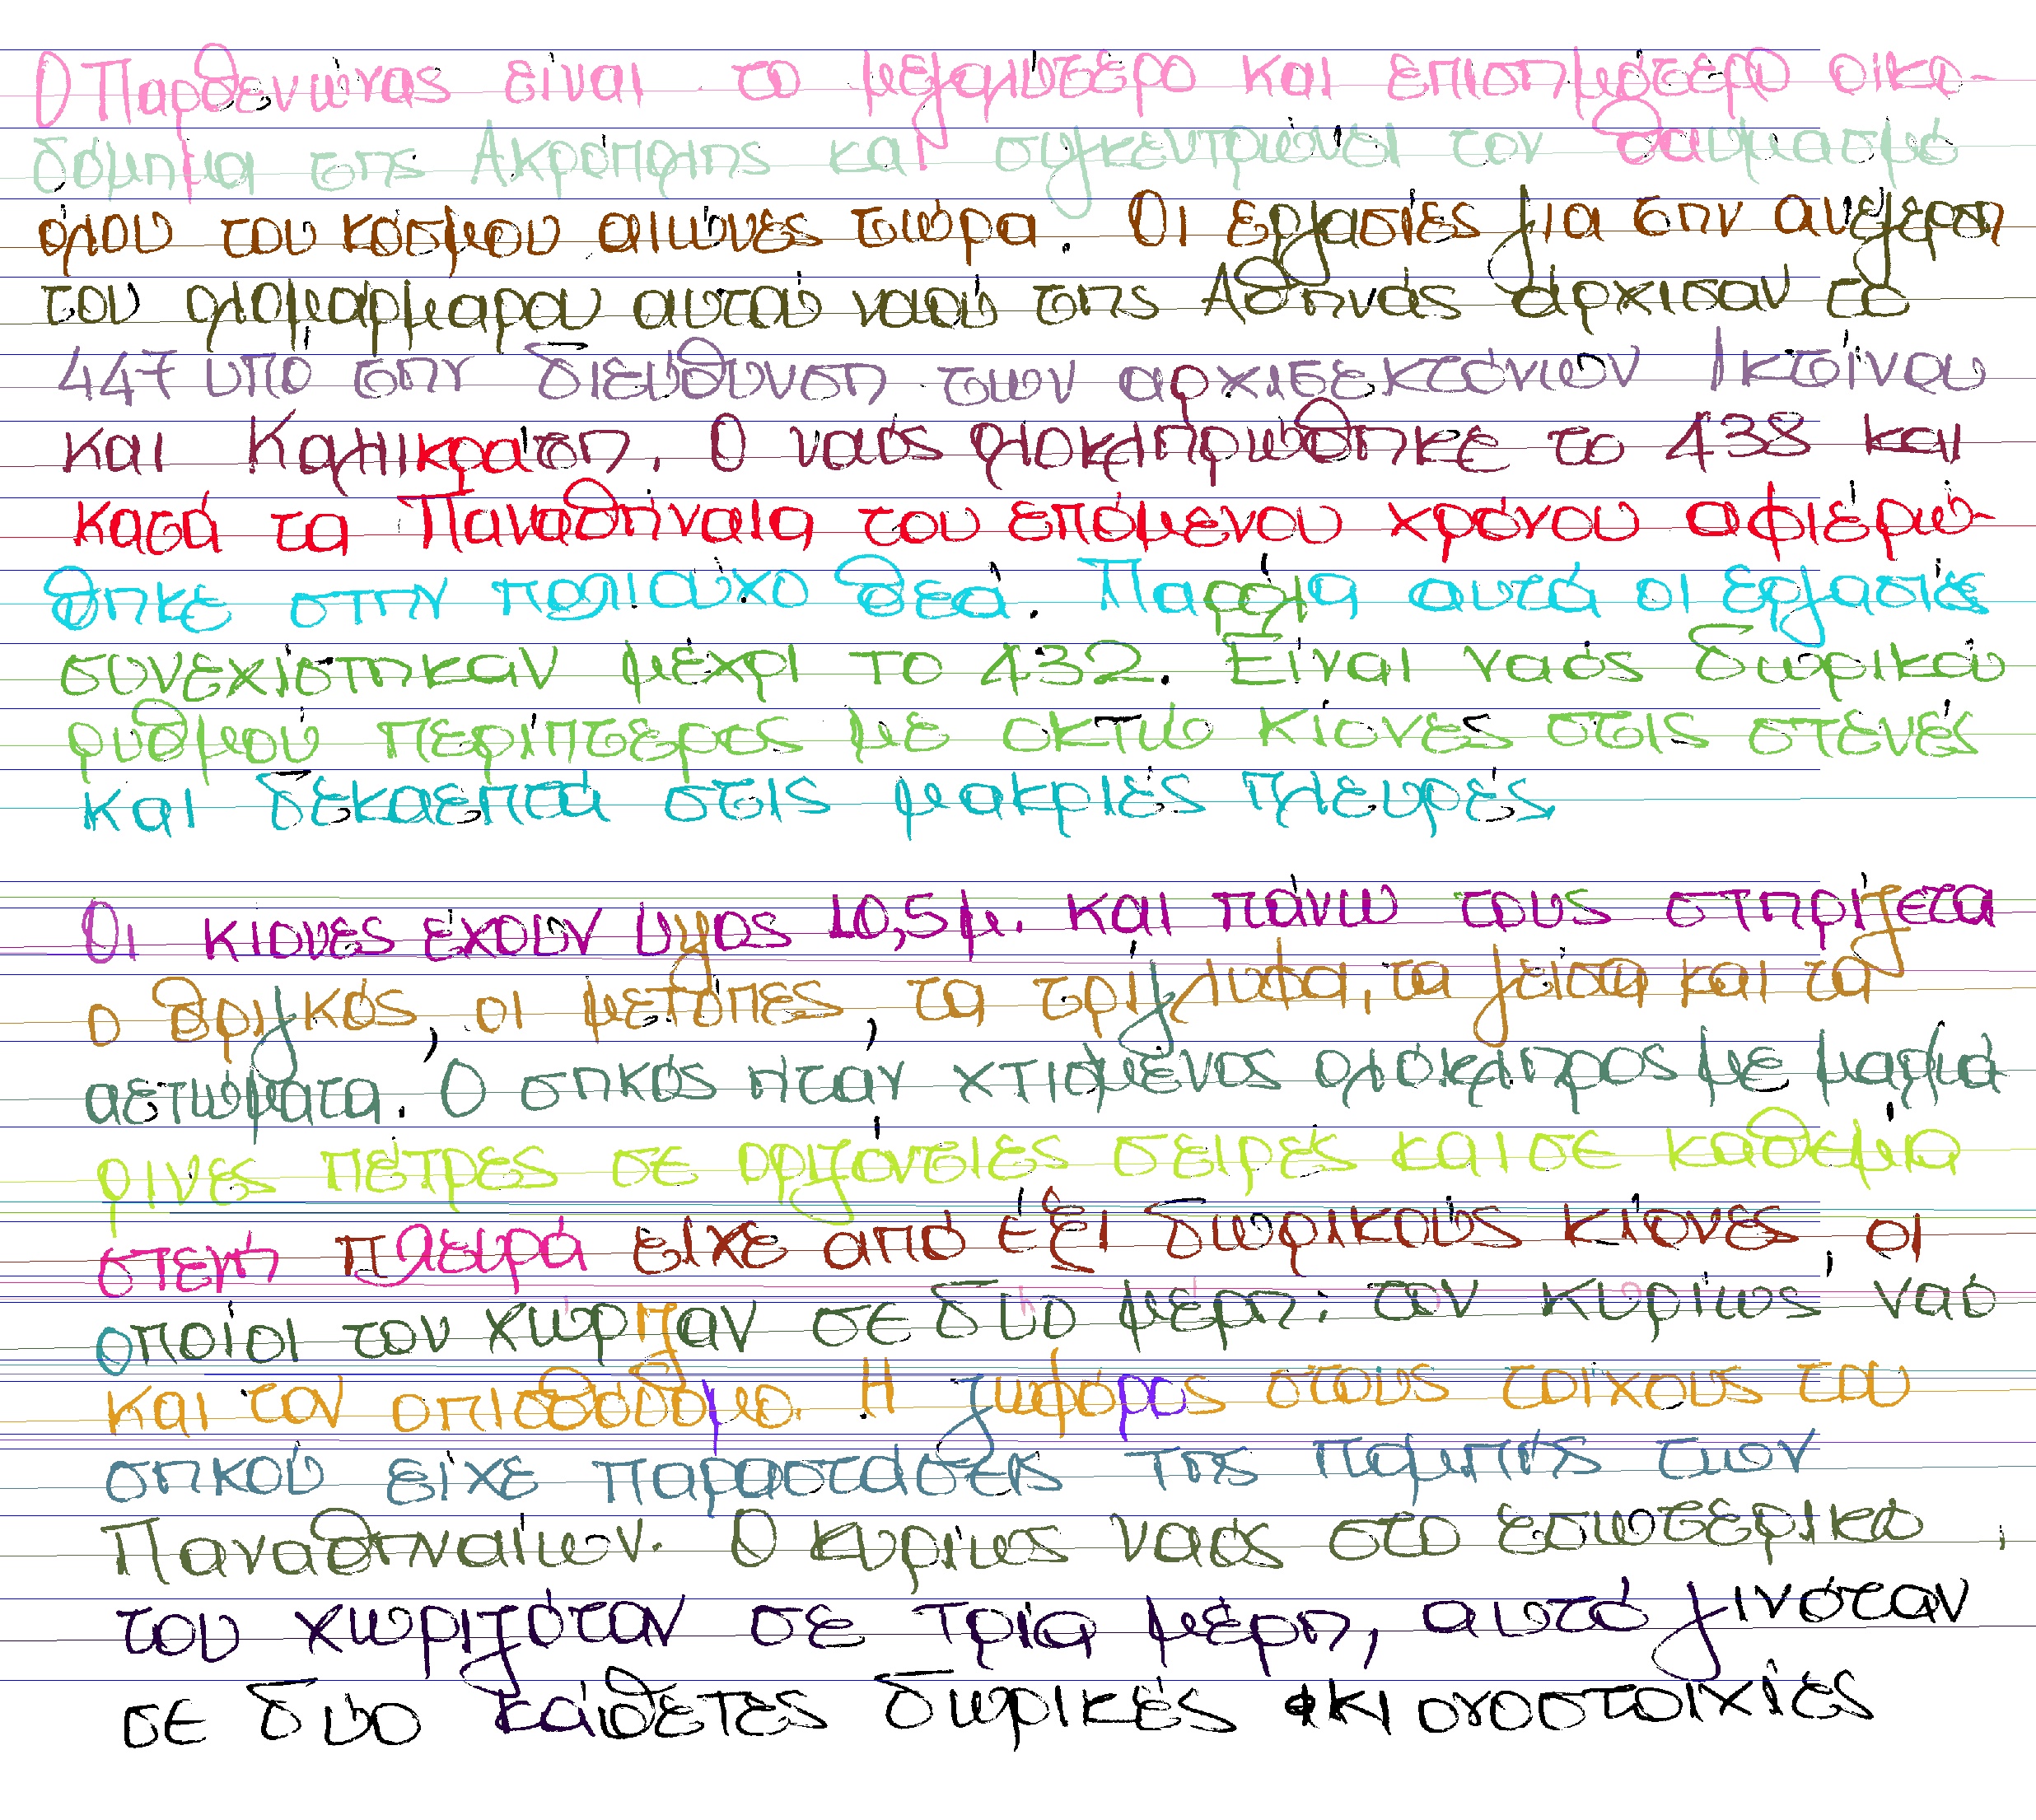 Ο Παρθενώνας είναι το μεγαλύτερο και επισημότερο οικο-
δόμημα της Ακρόπολης και συγκεντρώνει τον θαυμασμό
όλου του κόσμου αιώνες τώρα. Οι εργασίες για την ανέγερση
του ολομάρμαρου αυτού ναού της Αθηνάς άρχισαν το
447 υπό την διεύθυνση των αρχιτεκτόνων Ικτίνου
και Καλλικράτη. Ο ναός ολοκληρώθηκε το 438 και
κατά τα Παναθήναια του επόμενου χρόνου αφιερώ-
θηκε στην πολιούχο θεά. Παρόλα αυτά οι εργασίες
συνεχίστηκαν μέχρι το 432. Είναι ναός δωρικού
ρυθμού περίπτερος με οκτώ κίονες στις στενές
και δεκαεπτά στις μακριές πλευρές.
Οι κίονες έχουν ύψος 10,5μ. και πάνω τους στηρίζεται
ο θριγκός, οι μετόπες, τα τρίγλυφα, τα γείσα και τα
αετώματα. Ο σηκός ήταν χτισμένος ολόκληρος με μαρμά
ρινες πέτρες σε οριζόντειες σειρές και σε καθεμία
στενή πλευρά είχε από έξι δωρικούς κίονες, οι
οποίοι τον χώριζαν σε δύο μέρη: τον κυρίως ναό
και τον οπισθόδομο. Η ζωφόρος στους τοίχους του
σηκού είχε παραστάσεις της πομπής των
Παναθηναίων. Ο κυρίως ναός στο εσωτερικό
του χωριζόταν σε τρία μέρη, αυτό γινόταν
σε δύο κάθετες δωρικές κιονοστοιχίες